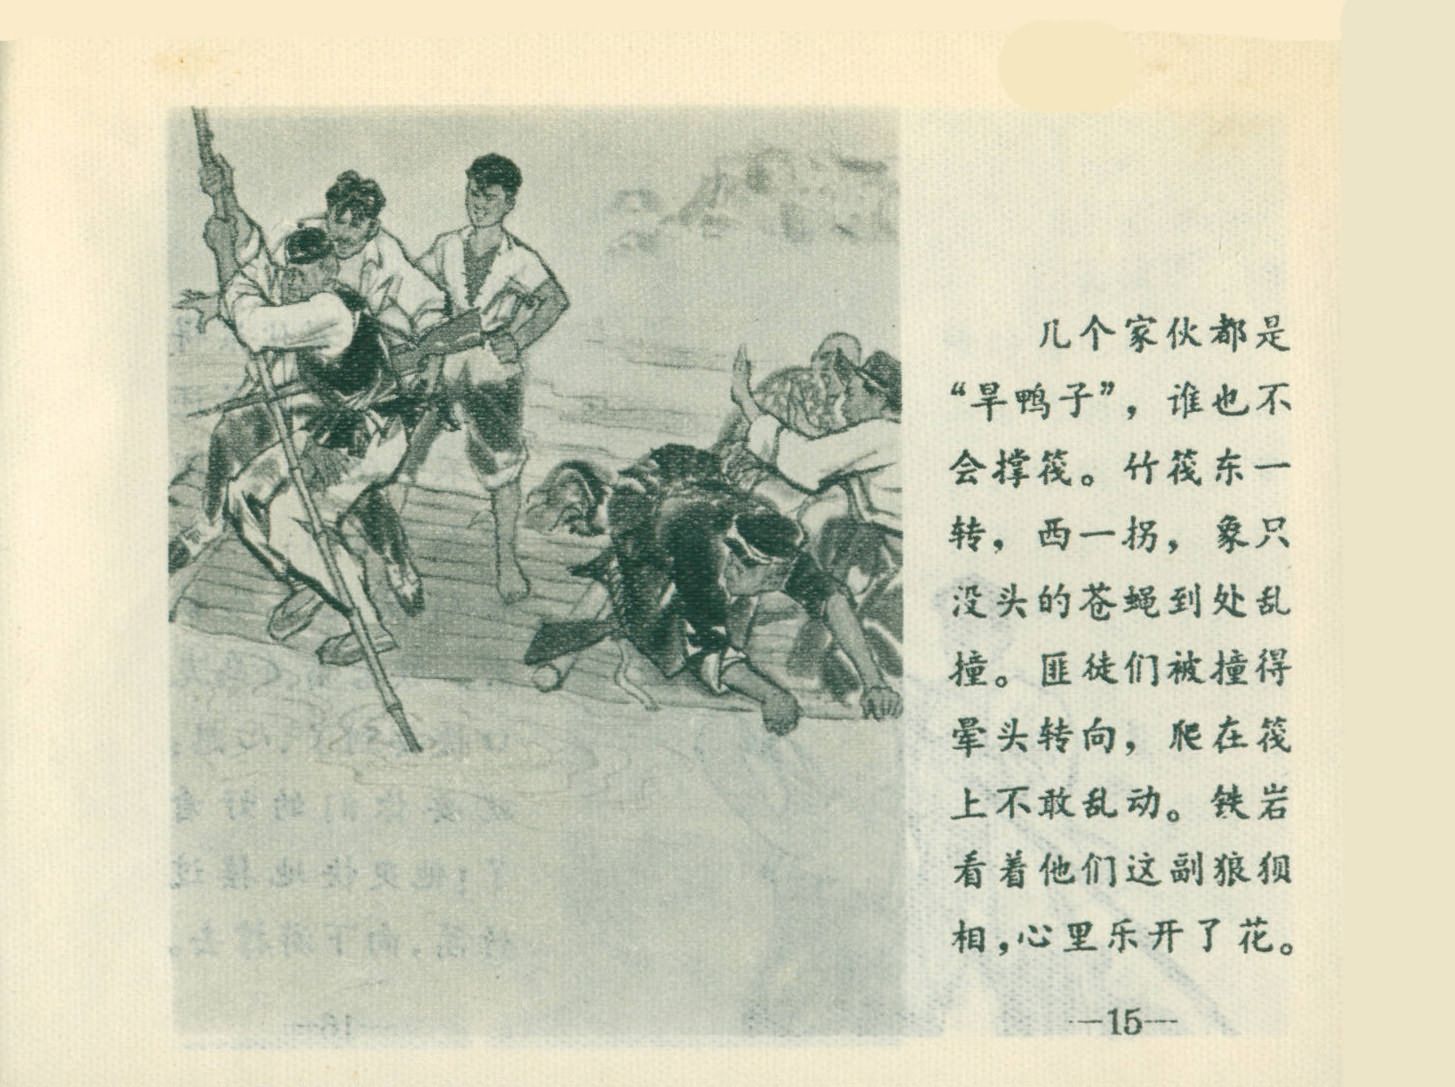 几个家伙都是
“旱鸭子”，谁也不
会撑筏。竹筏东一
转，西一拐，象只
没头的苍蝇到处乱
撞。匪徒们被撞得
晕头转向，爬在筏
上不敢乱动。铁岩
看着他们这副狼狈
相，心里乐开了花。
—15—